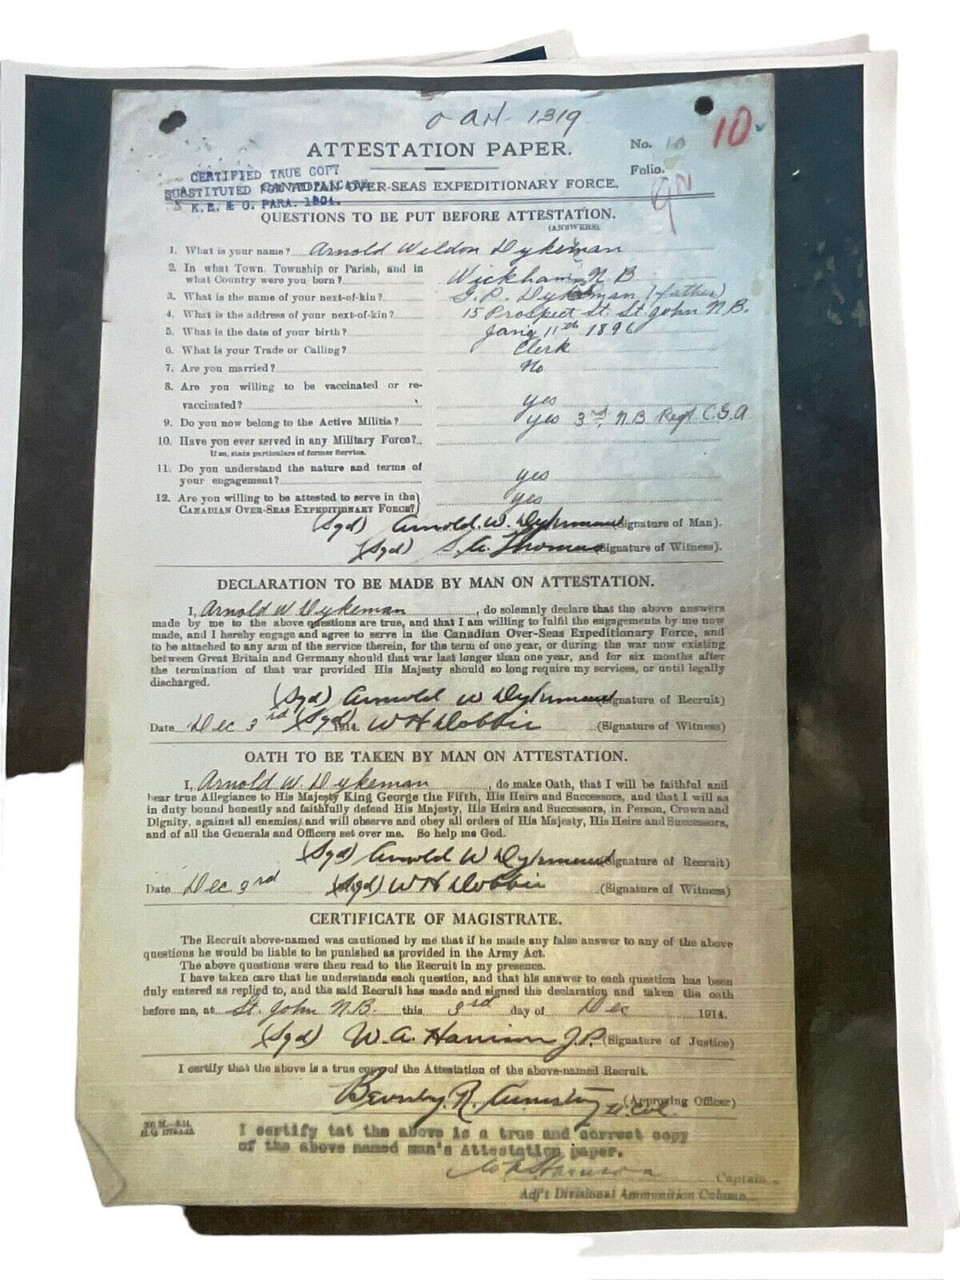 1319
10.
ATTESTATION PAPER.
No. 10
Folio.
CERTIFIED TRUE COPY
SUBSTITUTED
K.R. & O. PARA. 1204.
CANADIAN OVER-SEAS EXPEDITIONARY FORCE.
QUESTIONS TO BE PUT BEFORE ATTESTATION.
(ANSWERS)
1. What is your name? Arnold Weldon Dykeman
2. In what Town, Township or Parish, and in
what Country were you born? Wickham N B
3. What is the name of your next-of-kin? G. P. Dykeman (father)
4. What is the address of your next-of-kin? 15 Prospect St. St. John N.B.
5. What is the date of your birth? Jany 11th 1896
6. What is your Trade or Calling? Clerk
7. Are you married? No
8. Are you willing to be vaccinated or re-
vaccinated? yes
9. Do you now belong to the Active Militia? yes 3rd N B Regt C.G.A
10. Have you ever served in any Military Force?
If so, state particulars of former Service.
11. Do you understand the nature and terms of
your engagement? yes
12. Are you willing to be attested to serve in the
CANADIAN OVER-SEAS EXPEDITIONARY FORCE? yes
(Sgd) Arnold. W. Dykeman (Signature of Man).
(Sgd) S. A. Thomas (Signature of Witness).
DECLARATION TO BE MADE BY MAN ON ATTESTATION.
I, Arnold W Dykeman, do solemnly declare that the above answers
made by me to the above questions are true, and that I am willing to fulfil the engagements by me now
made, and I hereby engage and agree to serve in the Canadian Over-Seas Expeditionary Force, and
to be attached to any arm of the service therein, for the term of one year, or during the war now existing
between Great Britain and Germany should that war last longer than one year, and for six months after
the termination of that war provided His Majesty should so long require my services, or until legally
discharged.
(Sgd) Arnold W Dykeman (Signature of Recruit)
Date Dec 3rd 1914. (Sgd) W H Dobbie (Signature of Witness)
OATH TO BE TAKEN BY MAN ON ATTESTATION.
I, Arnold W. Dykeman, do make Oath, that I will be faithful and
bear true Allegiance to His Majesty King George the Fifth, His Heirs and Successors, and that I will as
in duty bound honestly and faithfully defend His Majesty, His Heirs and Successors, in Person, Crown and
Dignity, against all enemies, and will observe and obey all orders of His Majesty, His Heirs and Successors,
and of all the Generals and Officers set over me. So help me God.
(Sgd) Arnold W Dykeman (Signature of Recruit)
Date Dec 3rd (Sgd) W H Dobbie (Signature of Witness)
CERTIFICATE OF MAGISTRATE.
The Recruit above-named was cautioned by me that if he made any false answer to any of the above
questions he would be liable to be punished as provided in the Army Act.
The above questions were then read to the Recruit in my presence.
I have taken care that he understands each question, and that his answer to each question has been
duly entered as replied to, and the said Recruit has made and signed the declaration and taken the oath
before me, at St. John N.B. this 3rd day of Dec 1914.
(Sgd) W. A. Harrison J.P. (Signature of Justice)
I certify that the above is a true copy of the Attestation of the above-named Recruit.
Beverley R. Armstrong Lt. Col. (Approving Officer)
I certify tat the above is a true and correct copy
of the above named man's Attestation paper.
Harrison
Captain.
Adj't Divisional Ammunition Column.